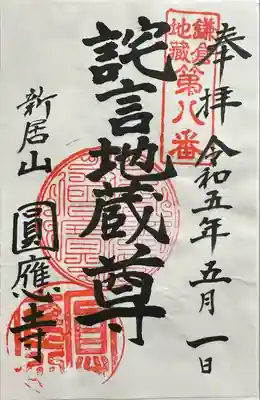 奉拝
令和五年五月一日
鎌倉
地蔵
第八番
詫言地蔵尊
新居山
圓應寺